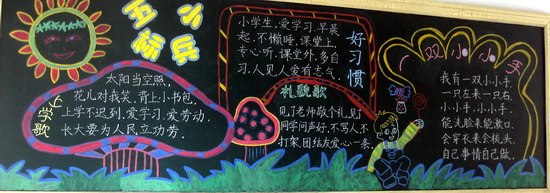 上学歌
太阳当空照,
花儿对我笑,背上小书包,
上学不迟到,爱学习,爱劳动,
长大要为人民立功劳.
好习惯
小学生,爱学习,早晨
起,不懒睡,课堂上,
专心听,课堂外,多自
习,人见人爱有志气.
礼貌歌
见了老师敬个礼,见了
同学问声好,不骂人不
打架,团结友爱心一条.
一双小小手
我有一双小小手,
一只左来一只右.
小小手,小小手,
能洗脸来能漱口,
会穿衣来会梳头,
自己事情自己做.